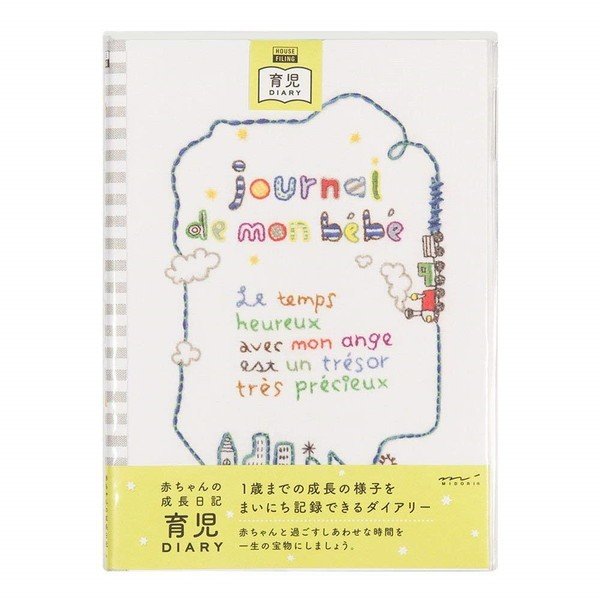 HOUSE
FILING
育児
DIARY
journal
de mon bébé
Le temps
heureux
avec mon ange
est un trésor
très précieux
赤ちゃんの
成長日記
育児
DIARY
1歳までの成長の様子を
まいにち記録できるダイアリー
赤ちゃんと過ごすしあわせな時間を
一生の宝物にしましょう。
MIDORI